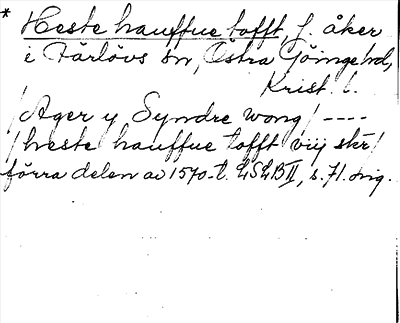 * Heste hauffue tofft, f. åker
i Färlövs sn, Östra Göinge hd,
Krist. l.
/Ager y Syndre wong/ ----
/heste hauffue tofft viij skr/
förra delen av 1570-t. LSLB II, s. 71. orig.